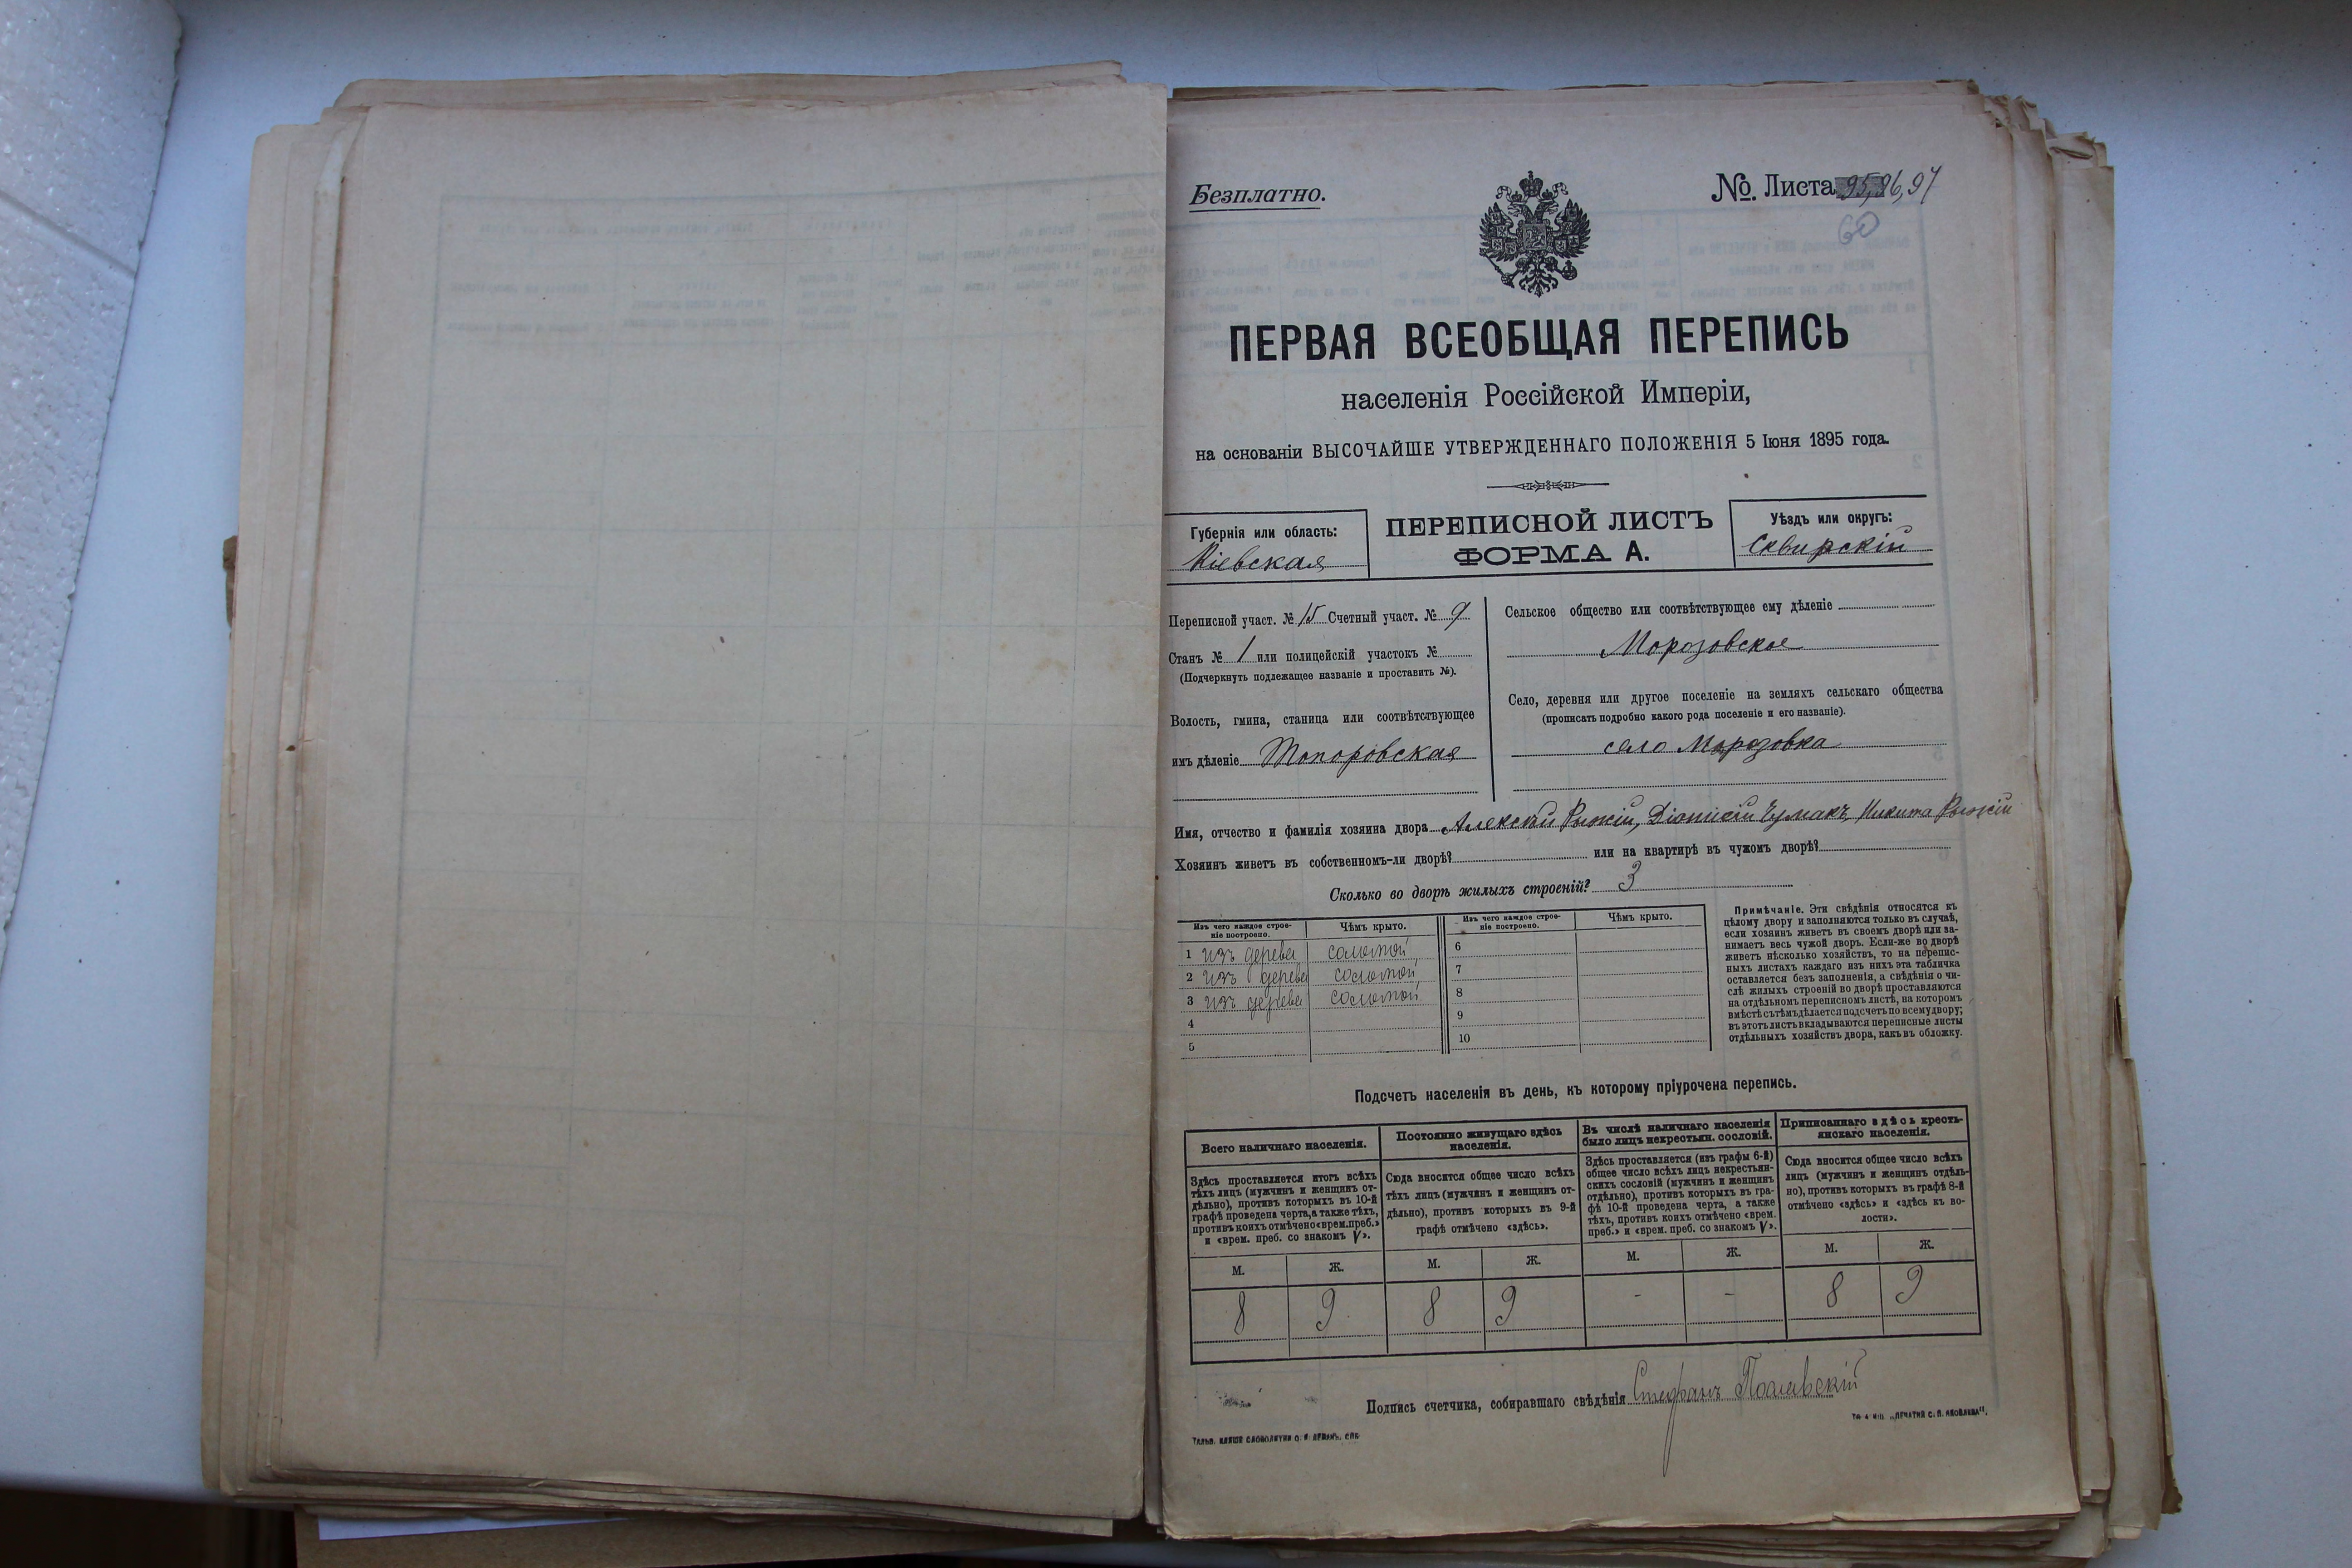 Безплатно.
№. Листа 95,96,97
60
ПЕРВАЯ ВСЕОБЩАЯ ПЕРЕПИСЬ
населенія Россійской Имперіи,
на основаніи ВЫСОЧАЙШЕ УТВЕРЖДЕННАГО ПОЛОЖЕНІЯ 5 Іюня 1895 года.
Губернія или область:
Кіевская
ПЕРЕПИСНОЙ ЛИСТЪ
ФОРМА А.
Уѣздъ или округъ:
Сквирскій
Переписной участ. № 15 Счетный участ. № 9
Станъ № 1 или полицейскій участокъ №
(Подчеркнуть подлежащее названіе и проставить №).
Волость, гмина, станица или соотвѣтствующее
имъ дѣленіе Топоровская
Сельское общество или соотвѣтствующее ему дѣленіе
Морозовское
Село, деревня или другое поселеніе на земляхъ сельскаго общества
(прописать подробно какого рода поселеніе и его названіе).
село Морозовка
Имя, отчество и фамилія хозяина двора Алексѣй Рыжій, Діонисій Чумакъ, Никита Рыжій
Хозяинъ живетъ въ собственномъ-ли дворѣ? или на квартирѣ въ чужомъ дворѣ?
Сколько во дворѣ жилыхъ строеній? 3
Изъ чего каждое строе-
ніе построено.
Чѣмъ крыто.
Изъ чего каждое строе-
ніе построено.
Чѣмъ крыто.
1 изъ дерева соломой
2 изъ дерева соломой
3 изъ дерева соломой
4
5
6
7
8
9
10
Примѣчаніе. Эти свѣдѣнія относятся къ
цѣлому двору и заполняются только въ случаѣ,
если хозяинъ живетъ въ своемъ дворѣ или за-
нимаетъ весь чужой дворъ. Если-же во дворѣ
живетъ нѣсколько хозяйствъ, то на перепис-
ныхъ листахъ каждаго изъ нихъ эта табличка
оставляется безъ заполненія, а свѣдѣнія о чи-
слѣ жилыхъ строеній во дворѣ проставляются
на отдѣльномъ переписномъ листѣ, на которомъ
вмѣстѣ съ тѣмъ дѣлается подсчетъ по всему двору;
въ этотъ листъ вкладываются переписные листы
отдѣльныхъ хозяйствъ двора, какъ въ обложку.
Подсчетъ населенія въ день, къ которому пріурочена перепись.
Всего наличнаго населенія.
Постоянно живущаго здѣсь
населенія.
Въ числѣ наличнаго населенія
было лицъ некрестьян. сословій.
Приписаннаго здѣсь кресть-
янскаго населенія.
Здѣсь проставляется итогъ всѣхъ
тѣхъ лицъ (мужчинъ и женщинъ от-
дѣльно), противъ которыхъ въ 10-й
графѣ проведена черта, а также тѣхъ,
противъ коихъ отмѣчено «врем. преб.»
и «врем. преб. со знакомъ V».
Сюда вносится общее число всѣхъ
тѣхъ лицъ (мужчинъ и женщинъ от-
дѣльно), противъ которыхъ въ 9-й
графѣ отмѣчено «здѣсь».
Здѣсь проставляется (изъ графы 6-й)
общее число всѣхъ лицъ некрестьян-
скихъ сословій (мужчинъ и женщинъ
отдѣльно), противъ которыхъ въ гра-
фѣ 10-й проведена черта, а также
тѣхъ, противъ коихъ отмѣчено «врем.
преб.» и «врем. преб. со знакомъ V».
Сюда вносится общее число всѣхъ
лицъ (мужчинъ и женщинъ отдѣль-
но), противъ которыхъ въ графѣ 8-й
отмѣчено «здѣсь» и «здѣсь къ во-
лости».
М. Ж. М. Ж. М. Ж. М. Ж.
8 9 8 9 - - 8 9
Подпись счетчика, собиравшаго свѣдѣнія Стефанъ